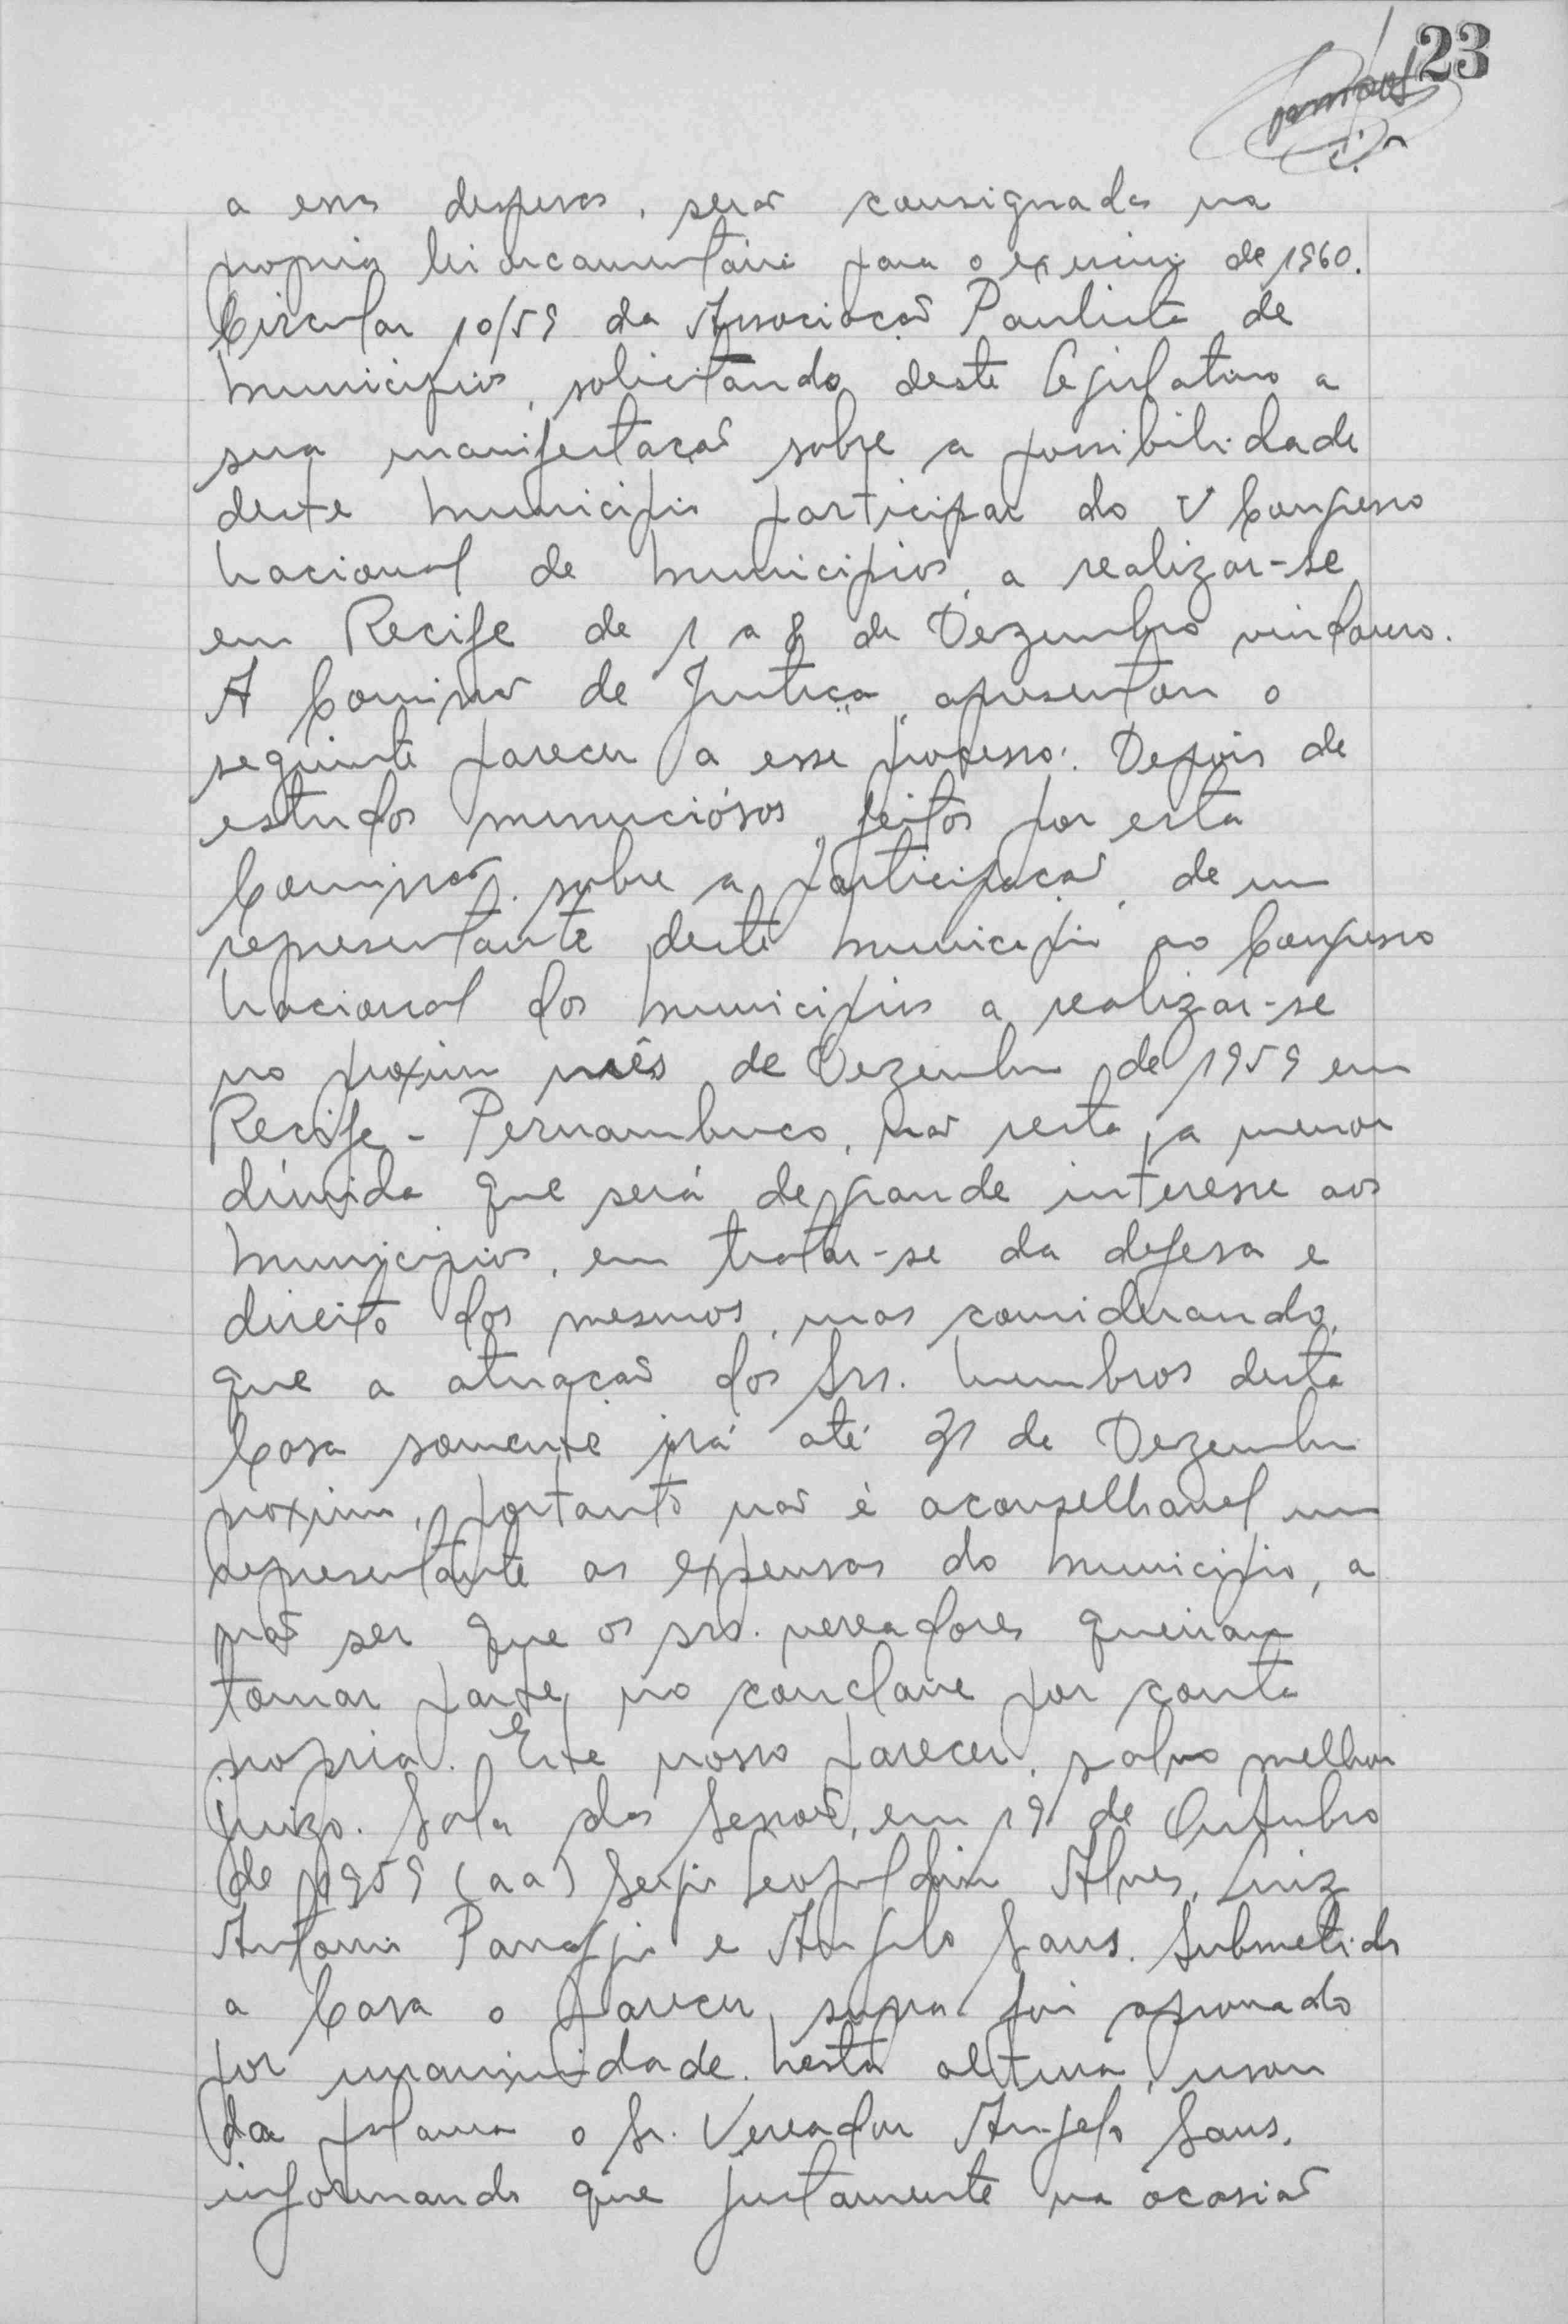 23
a essa despesa, será consignada na
propria lei orcamentária para o exercicio de 1960.
Circular 10/59 da Associação Paulista de
Municipios, solicitando deste Legislativo a
sua manifestação sobre a possibilidade
deste Municipio participar do V Congresso
Nacional de Municipios, a realizar-se
em Recife de 1 a 8 de Dezembro vindouro.
A Comissão de Justiça, apresentou o
seguinte parecer a esse processo: Depois de
estudos minuciósos, feitos por esta
Comissão, sobre a participação, de um
representante deste Municipio ao Congresso
Nacional dos Municipios a realizar-se
no proximo mês de Dezembro de 1959 em
Recife - Pernambuco, não resta, a menor
dúvida que será de grande interesse aos
Municipios, em tratar-se da defesa e
direito dos mesmos, mas considerando,
que a atuação dos Srs. Membros desta
Casa somente irá até 31 de Dezembro
proximo, portanto não é aconselhavel um
representante as expensas do Municipio, a
não ser que os srs. vereadores queiram
tomar parte no conclave por conta
propria. Este nosso parecer, salvo melhor
juizo. Sala das Sessoẽs, em 19 de Outubro
de 1959 (aa) Sergio Leopoldino Alves, Luiz
Antonio e Angelo Sans. Submetido
a Casa o parecer supra foi aprovado
por unanimidade. Nesta altura, usou
da palavra o Sr. Vereador Angelo Sans,
informando que justamente na ocasião